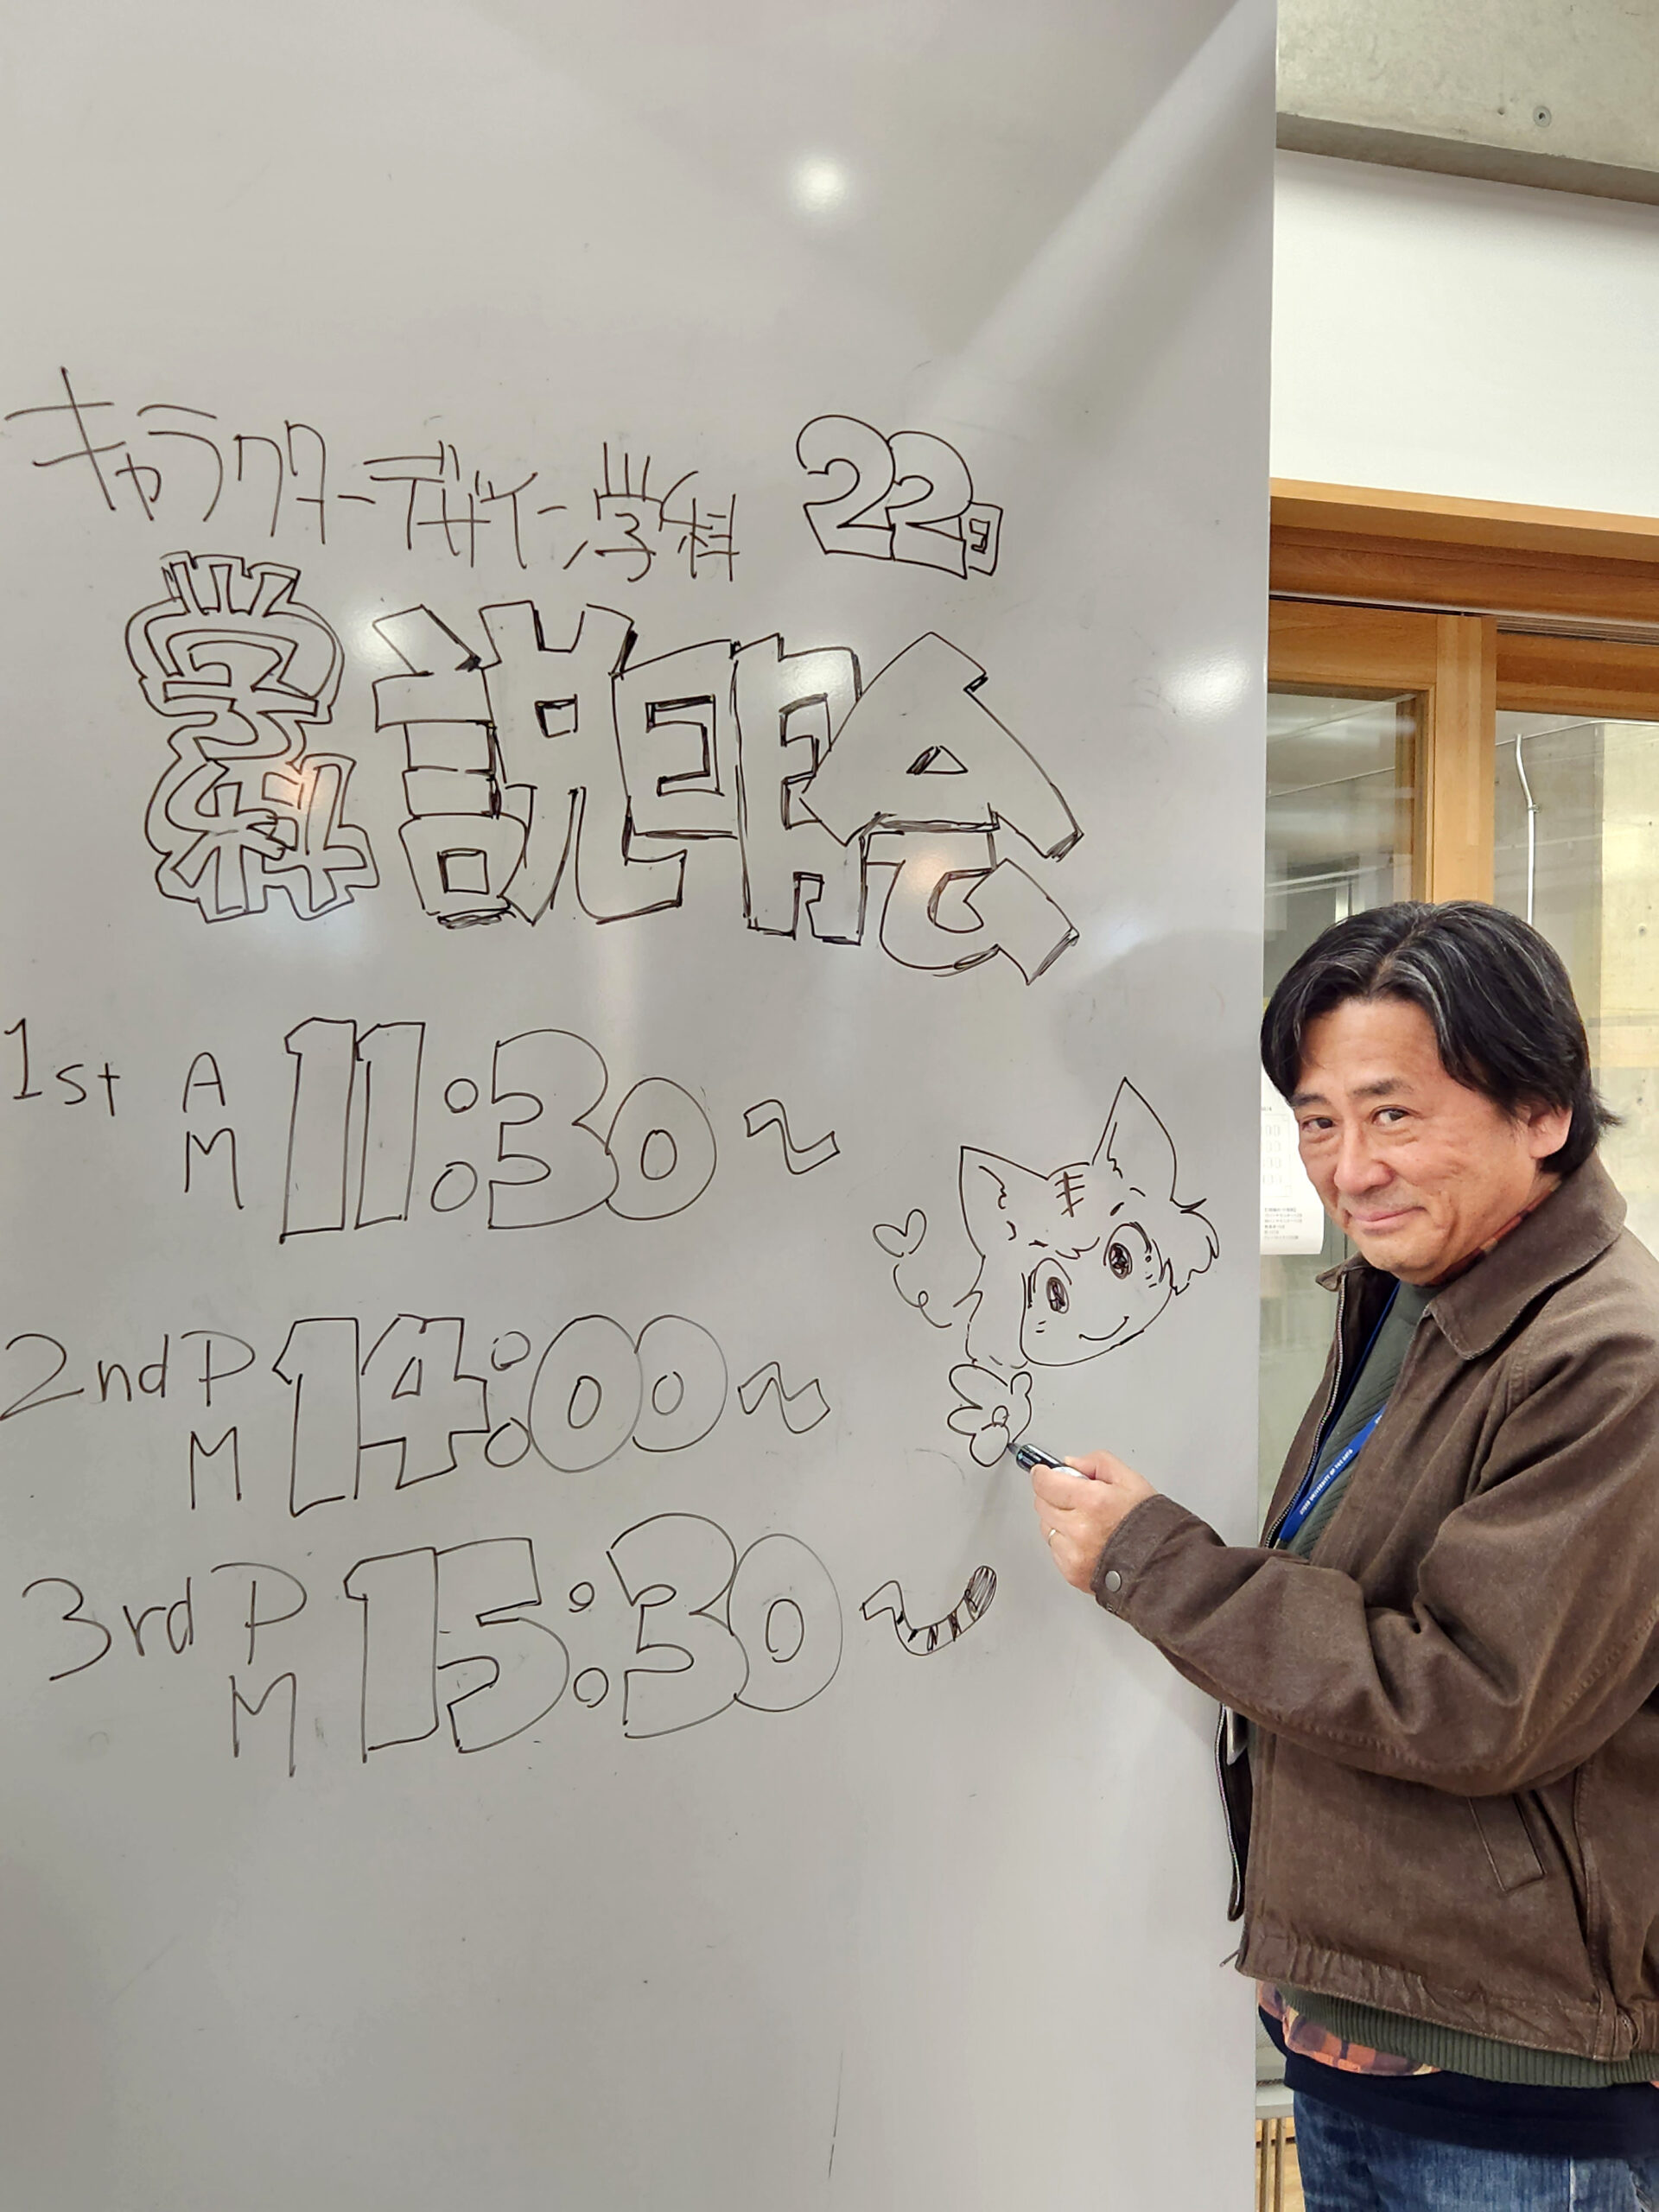 キャラクターデザイン学科 22日
学科説明会
1st AM 11:30～
2nd PM 14:00～
3rd PM 15:30～